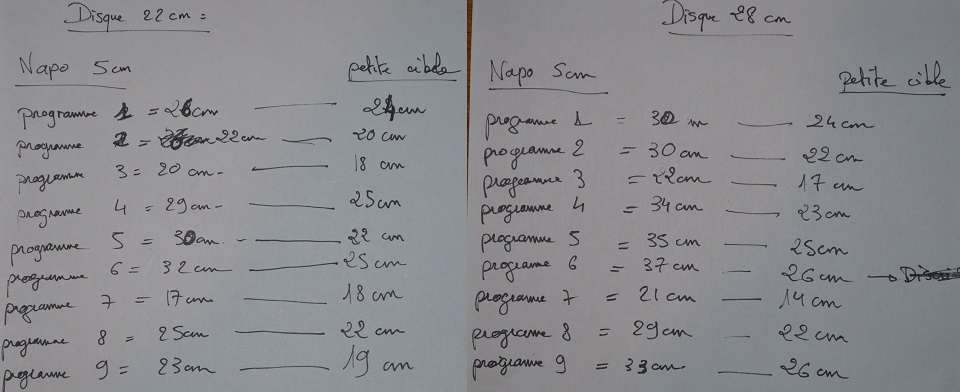 Disque 22 cm =
Napo 5cm petite cible
programme 1 = 26cm — 24cm
programme 2 = 22cm — 20 cm
programm 3 = 20 cm - — 18 cm
programme 4 = 29cm - — 25cm
programme 5 = 30cm - — 22 cm
programme 6 = 32 cm — 25cm
programme 7 = 17cm — 18 cm
programme 8 = 25cm — 22 cm
programme 9 = 23cm — 19 cm
Disque 28 cm
Napo 5cm petite cible
programme 1 = 32 m — 24cm
programme 2 = 30cm — 22cm
programme 3 = 22cm — 17 cm
programme 4 = 34 cm — 23cm
programme 5 = 35 cm — 25cm
programe 6 = 37cm — 26 cm →
programme 7 = 21 cm — 14cm
programme 8 = 29cm — 22cm
programme 9 = 33cm — 26 cm